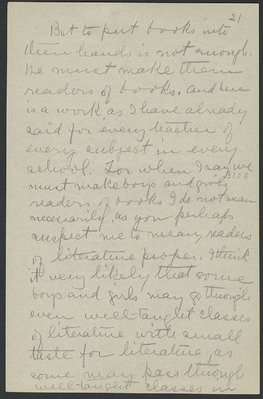 21
But to put books into
their hands is not enough.
We must make them
readers of books. And here
is a work, as I have already
said for every teacher of
every subject in every
school. For when I say we
must make boys and girls
readers of books I do not mean
necessarily, as you perhaps
suspect me to mean, readers
of literature proper. I think
it very likely that some
boys and girls may go through
even well-taught classes
of literature with small
taste for literature, as
some may pass through
well-taught classes in